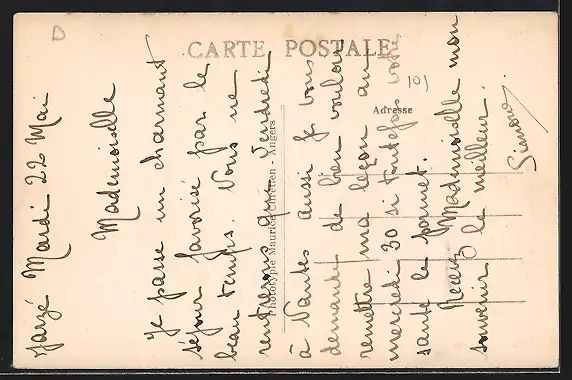 D
CARTE POSTALE
101
Adresse
Phototypie Maurice Chrétien - Angers
Jarzé Mardi 22 Mai
Mademoiselle
Je passe un charmant
séjour favorisé par le
beau temps. Nous ne
rentrerons que Vendredi
à Nantes aussi je vous
demande de bien vouloir
remettre ma leçon au
mercredi 30 si toutefois votre
santé le permet.
Recevez Mademoiselle mon
souvenir le meilleur.
Simone